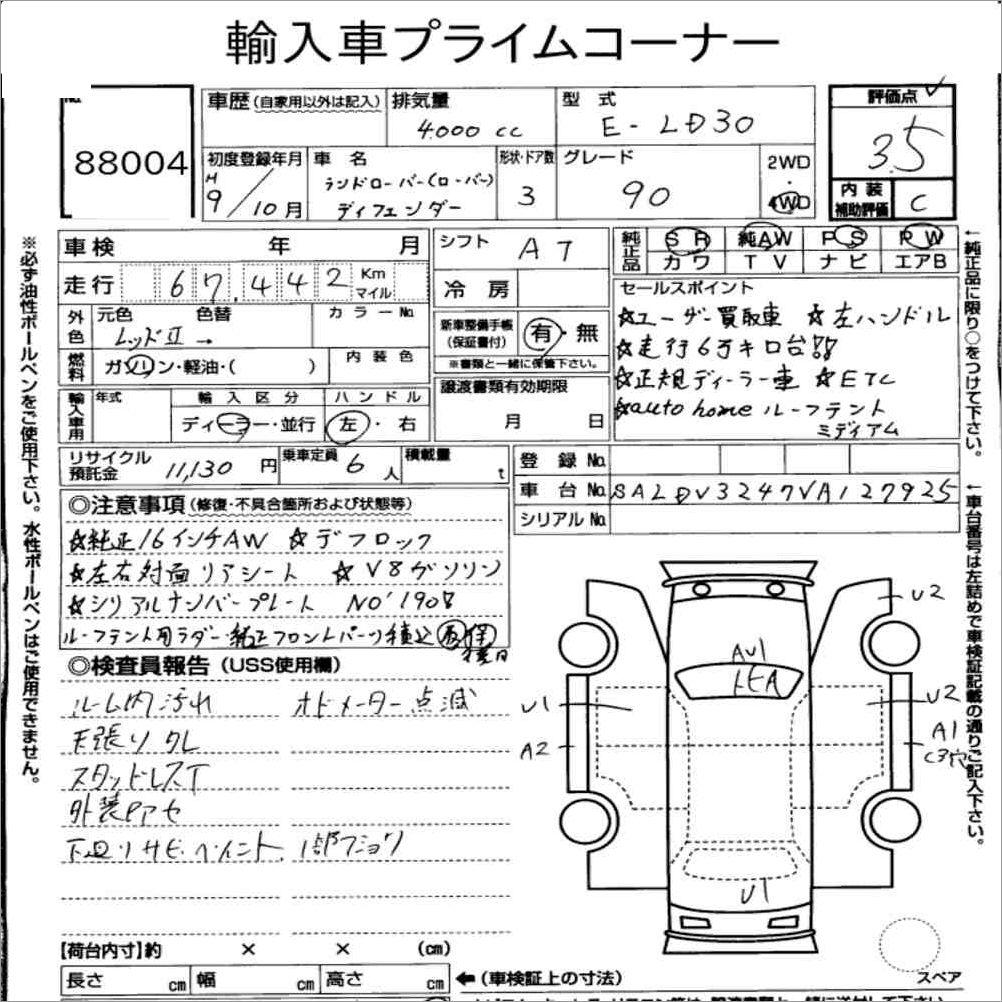 輸入車プライムコーナー
88004
車歴(自家用以外は記入)
排気量
4.000 cc
型式
E-LD30
評価点
3.5
初度登録年月
H
9/10月
車名
ランドローバー(ローバー)
ディフェンダー
形状・ドア数
3
グレード
90
2WD
・
4WD
内装
補助評価
C
※必ず油性ボールペンをご使用下さい。水性ボールペンはご使用できません。
車検 年 月
シフト
AT
純正品
SR 純AW PS PW
カワ TV ナビ エアB
走行 67.442 Km
マイル
冷房
セールスポイント
☆ユーザー買取車 ☆左ハンドル
☆走行6万キロ台!!
☆正規ディーラー車 ☆ETC
☆auto home ルーフテント
ミディアム
外色
元色 色替
レッドⅡ →
カラーNo
新車整備手帳
(保証書付)
有・無
※書類と一緒に保管下さい。
燃料
ガソリン・軽油・( )
内装色
譲渡書類有効期限
月 日
輸入車用
年式
輸入区分
ディーラー・並行
ハンドル
左・右
リサイクル
預託金
11,130 円
乗車定員
6 人
積載量
t
登録No
車台No
SALDV3247VA127925
シリアルNo
←純正品に限り○をつけて下さい。
←車台番号は左詰めで車検証記載の通りご記入下さい。
◎注意事項(修復・不具合箇所および状態等)
☆純正16インチAW ☆デフロック
☆左右対面リアシート ☆V8ガソリン
☆シリアルナンバープレート NO'1908
ルーフテント用ラダー・純正フロントパーツ積込
◎検査員報告(USS使用欄)
ルーム内汚れ オドメーター点滅
天張りタレ
スタッドレスT
外装Pアセ
下廻りサビ、ペイント、1部フショク
U2
AU1
トビA
U1
U2
A2
A1
U1
【荷台内寸】約 × × (cm)
長さ cm 幅 cm 高さ cm
←(車検証上の寸法)
スペア